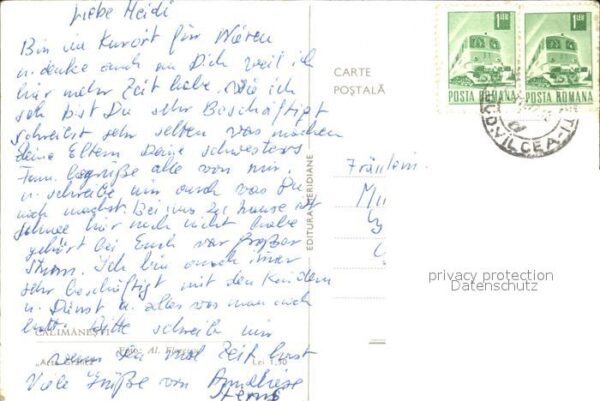 Liebe Heidi
Bin im Kurort für Nieren
u. denke auch an Dich weil ich
hier mehr Zeit habe. Wie ich
seh bist Du sehr Beschäftigt
schreibst sehr selten was machen
deine Eltern Deine schwesters
Fam. begrüße alle von mir
u. schreibe mir auch was Du
noch machst. Bei uns zu hause ist
schnee hier noch nicht habe
gehört bei Euch war großer
Sturm. Ich bin auch immer
sehr beschäftigt mit den Kindern
u. Dienst u. alles was man noch
hatt. Bitte schreib mir
wenn Du mal Zeit hast
Viele Grüße von
CĂLIMĂNEŞTI
Foto: Al.
Lei 1,50
EDITURA MERIDIANE
CARTE
POŞTALĂ
1 LEU
POSTA ROMANA
1 LEU
POSTA ROMANA
VÎLCEA
Fräulein
privacy protection
Datenschutz